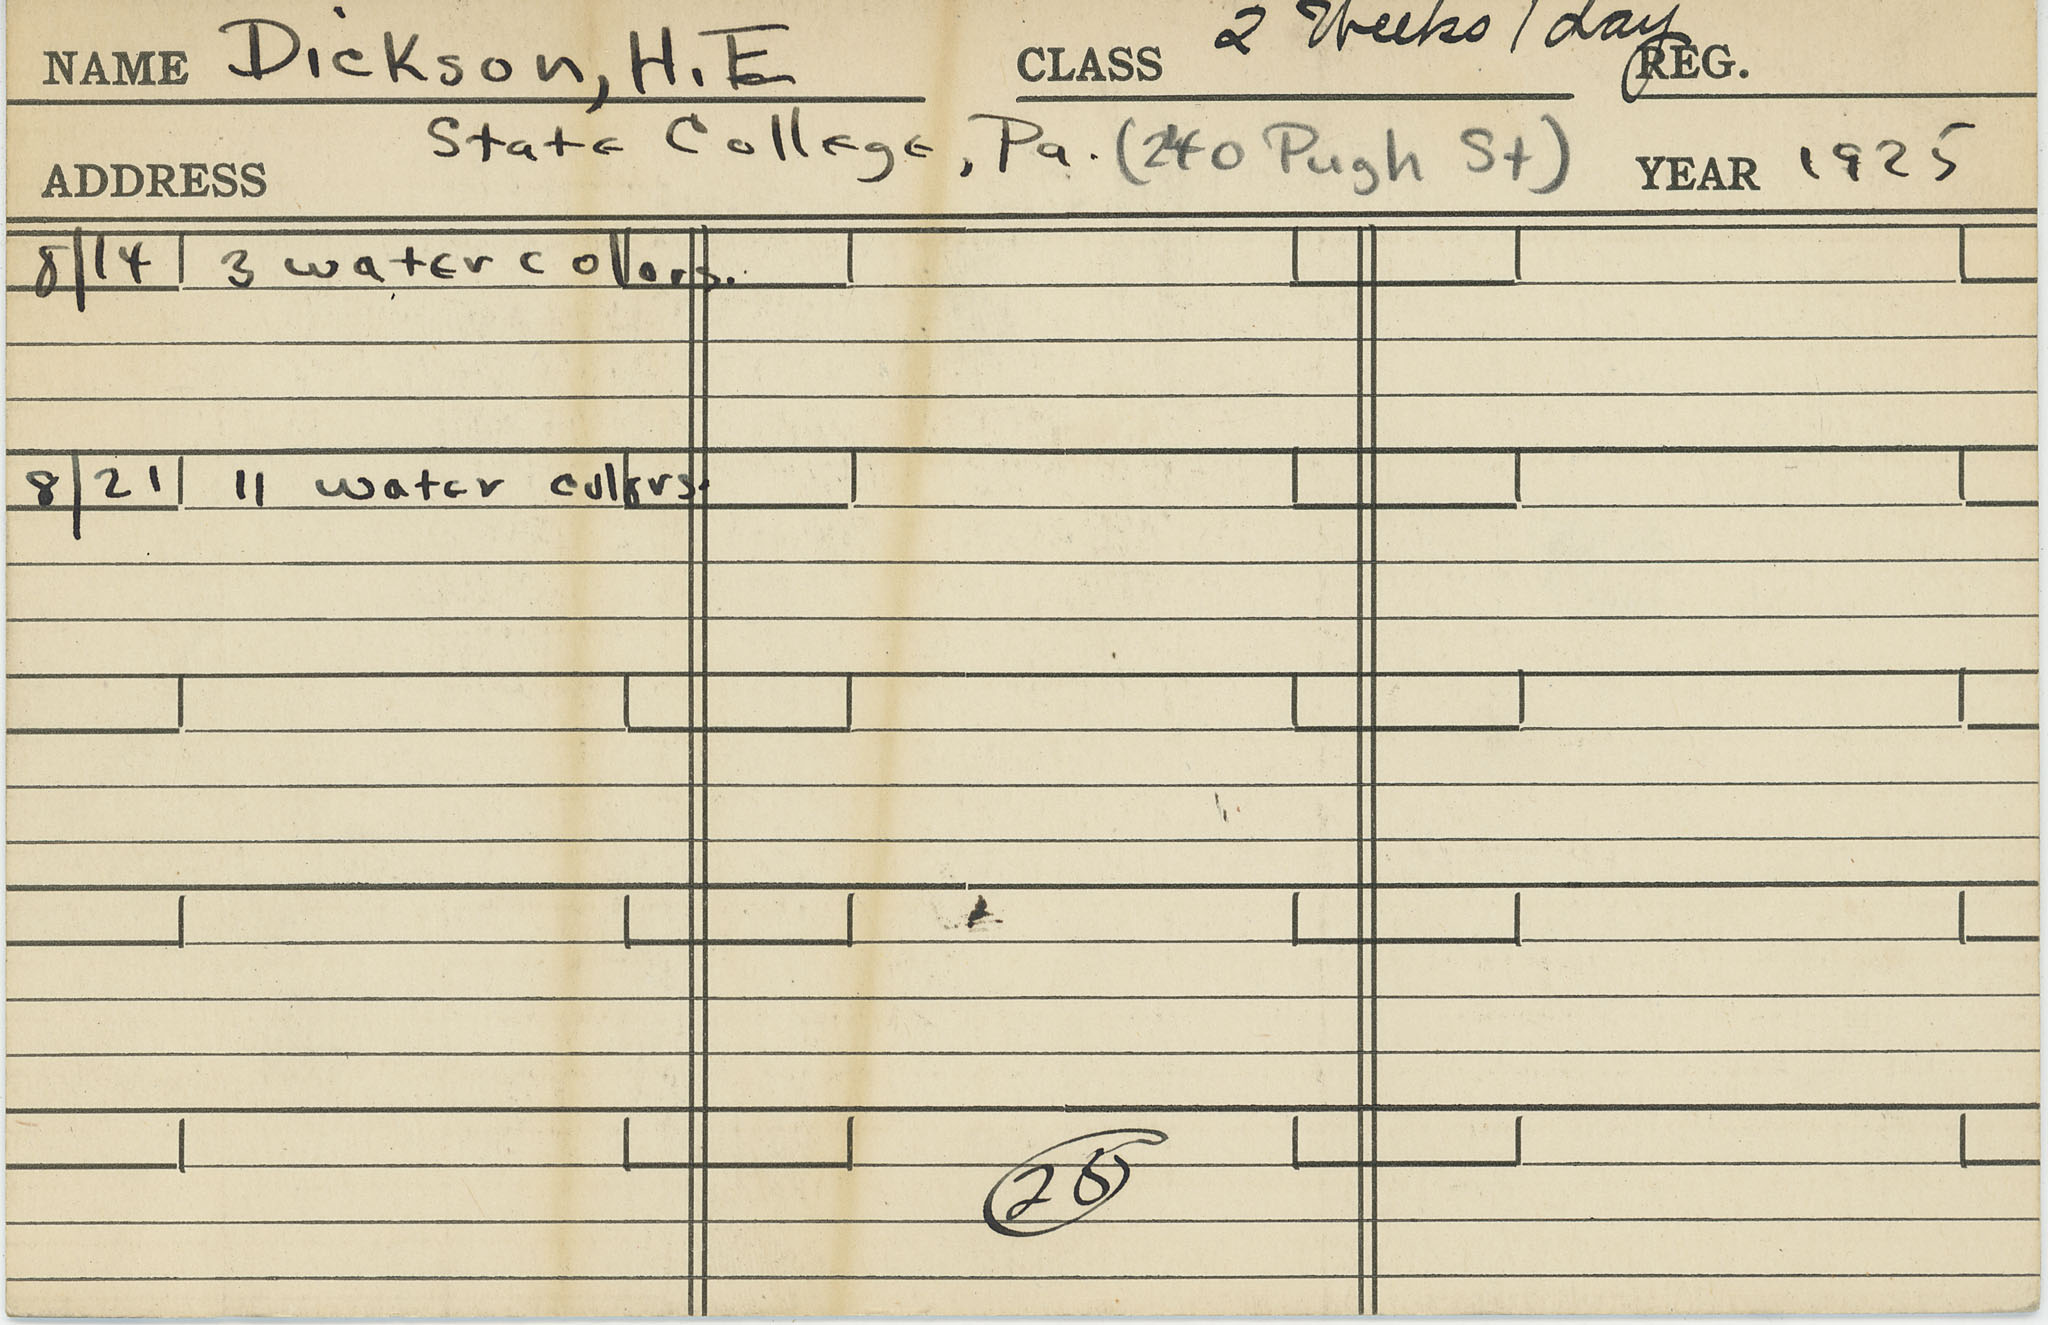 NAME Dickson, H.E CLASS 2 Weeks 1 day REG.
ADDRESS State College, Pa. (240 Pugh St) YEAR 1925
8/14 3 water colors.
8/21 11 water colors.